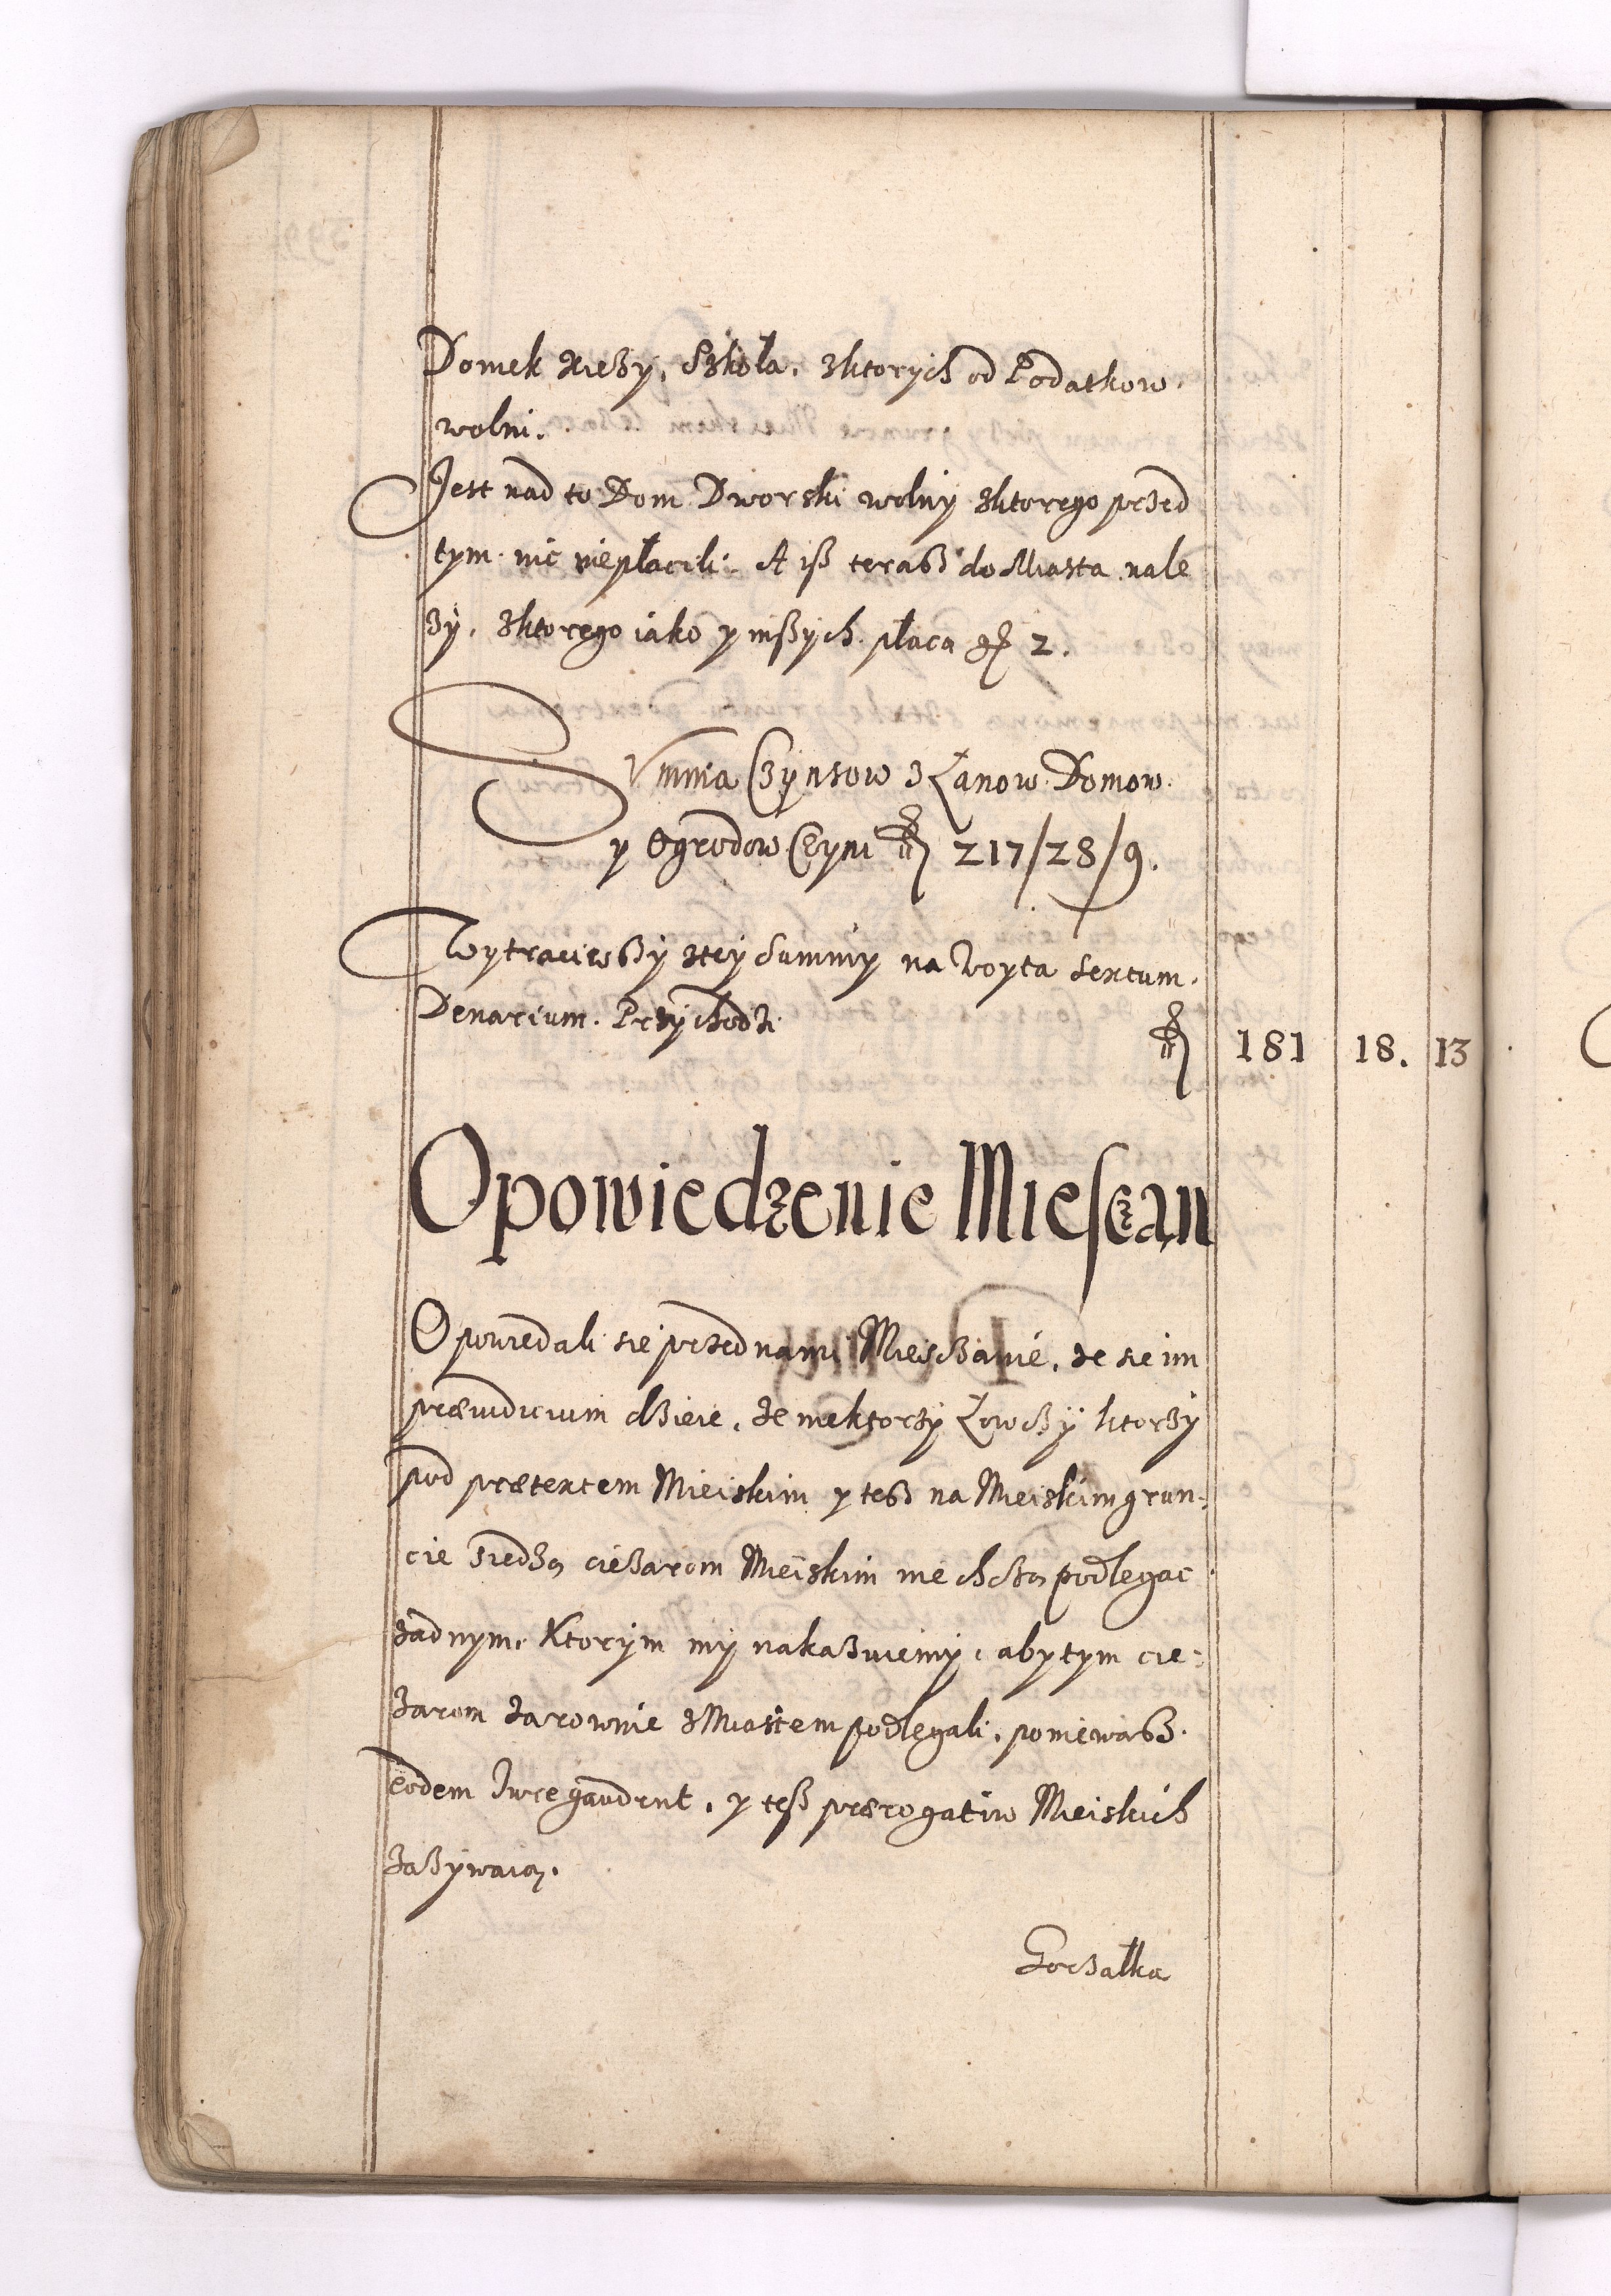 Domek Xięży, Szkoła, zktorych od Podatkow
wolni.
Jest nad to Dom Dworski wolny zktorego przed
tym nic niepłacili. A iß teraß do Miasta nale
zy, zktorego iako y inßych płaca gr 2.
Summa Czynsow z Łanow Domow
y Ogrodow Czyni fl 217/28/9.
Wytraciwßy ztey Summy na Woyta Sextum
Denarium. Przychodzi fl 181 18. 13
Opowiedzenie Miesczan
Opowiedali sie przed nami Miesczanie, ze sie im
præiudicium dzieie, ze niektorzy Łowczy ktorzy
pod prætextem Mieiskim y teß na Mieiskim grun:
cie siedzą ciezarom Mieiskim nie chczą podlegac
zadnym. Ktorym my nakazuiemy, aby tym cie:
zarom zarownie z Miastem podlegali, poniewaß
eodem Jure gaudent, y teß prærogatiw Mieiskich
zazywaią.
Gorzałka